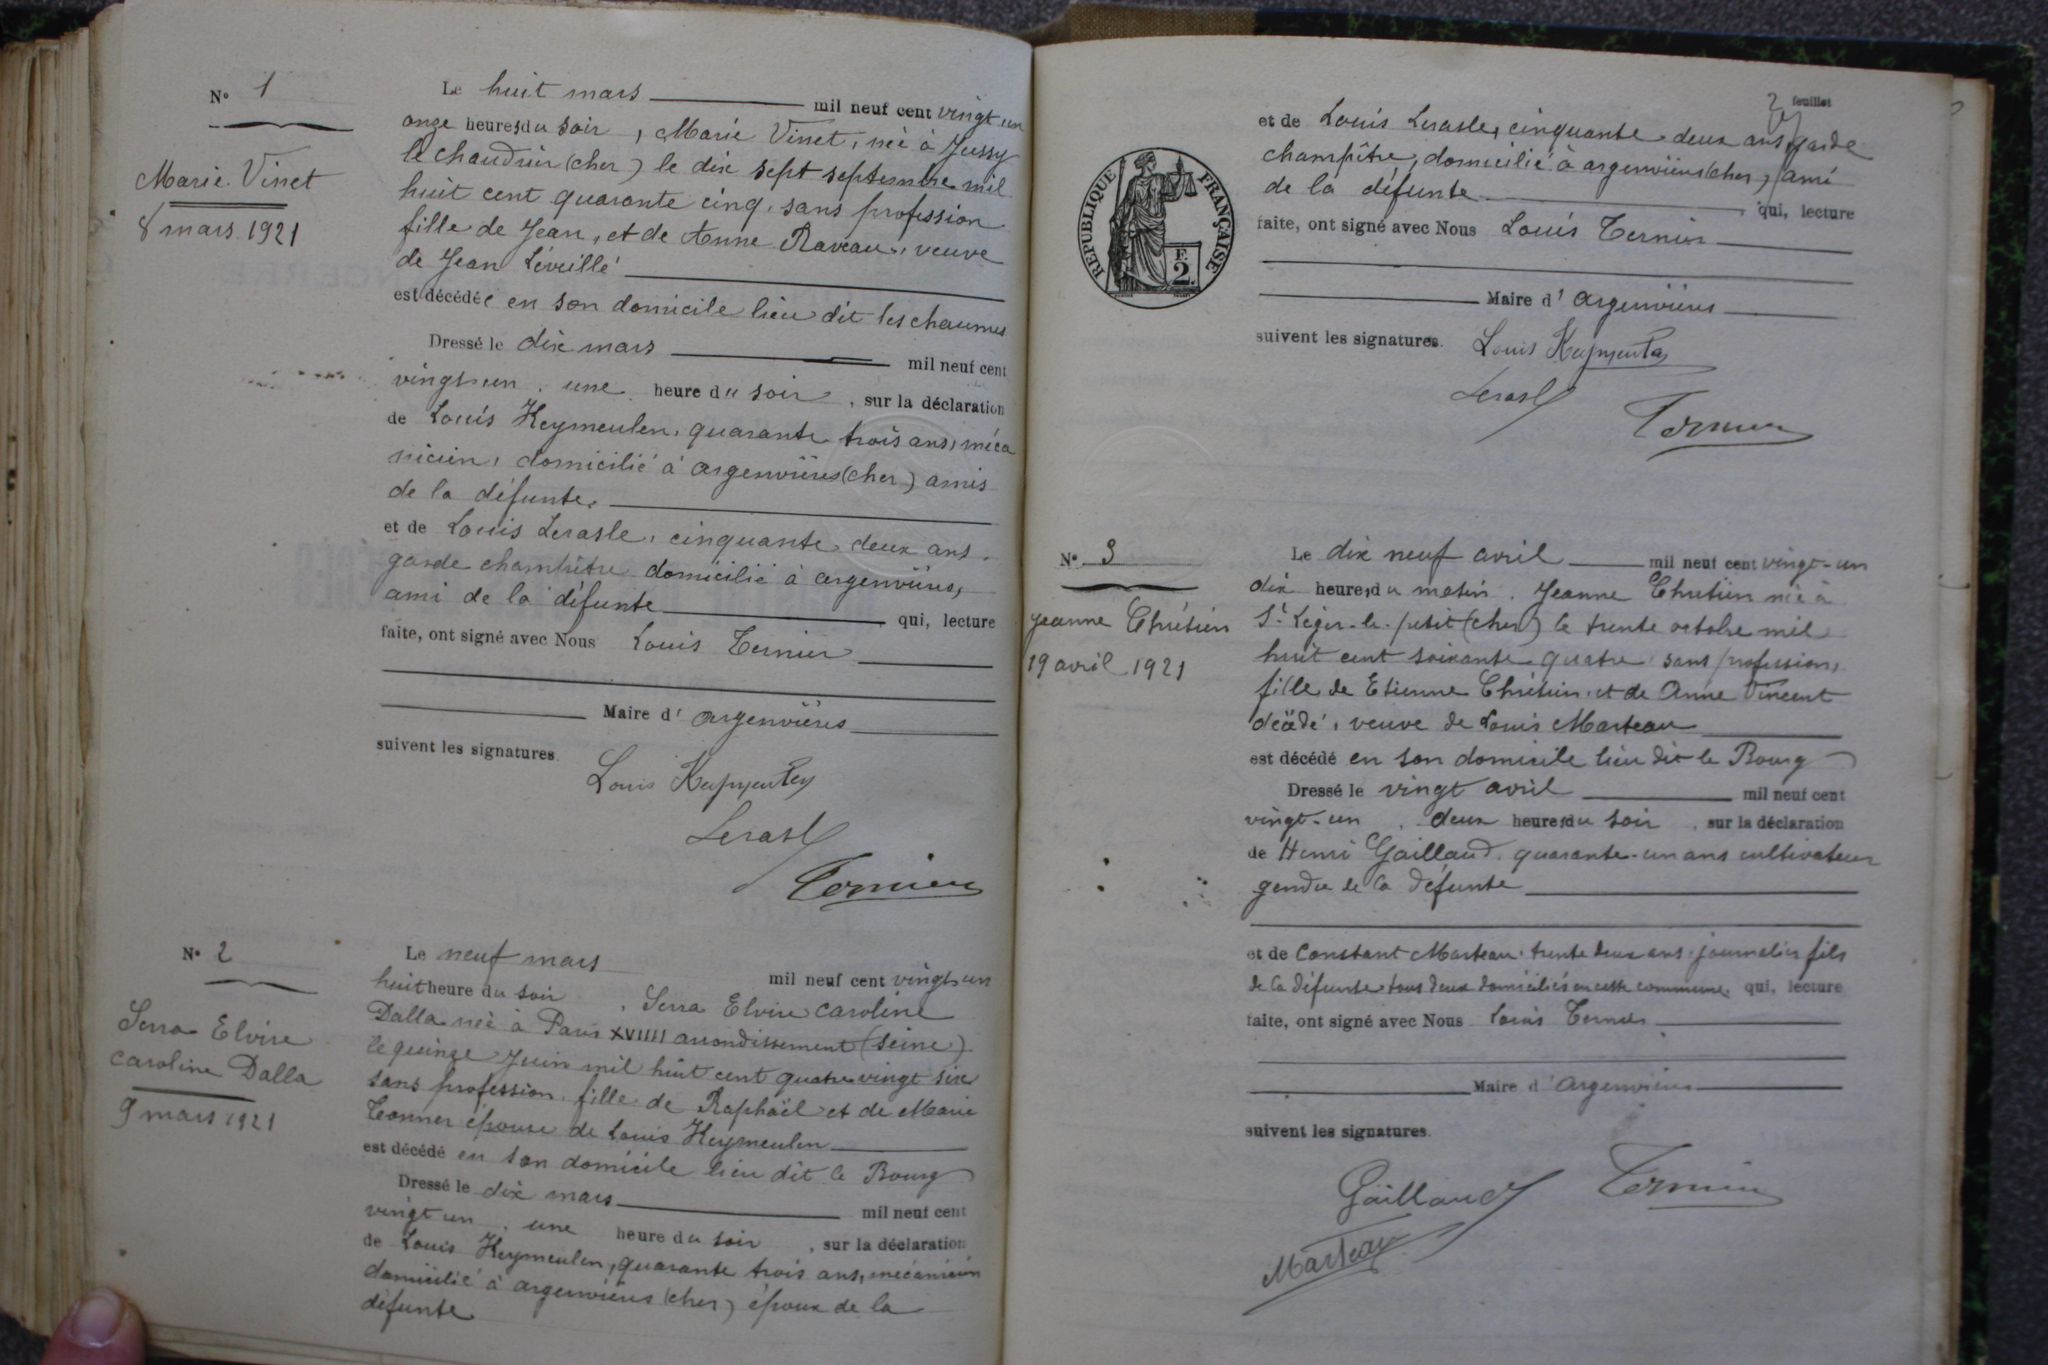 N° 1
Marie Vinet
8 mars 1921
Le huit mars mil neuf cent vingt un
onze heures du soir, Marie Vinet, née à Jussy
le chaudrier (cher) le dix sept septembre mil
huit cent quarante cinq, sans profession
fille de Jean, et de Anne Raveau, veuve
de Jean Léveillé
est décédée en son domicile lieu dit les chaumes
Dressé le dix mars mil neuf cent
vingt un, une heure du soir, sur la déclaration
de Louis Keymeulen, quarante trois ans, méca
nicien, domicilié à argenvières (cher) amis
de la défunte,
et de Louis Lerasle, cinquante deux ans,
garde champêtre domicilié à argenvières,
ami de la défunte qui, lecture
faite, ont signé avec Nous Louis Ternier
Maire d' argenvières
suivent les signatures.
Louis
Lerasl
Ternier
N° 2
Serra Elvire
Caroline Dalla
9 mars 1921
Le neuf mars mil neuf cent vingt un
huit heure du soir, Serra Elvire Caroline
Dalla née à Paris XVIIII arrondissement (seine)
le quinze Juin mil huit cent quatre vingt six
sans profession, fille de Raphaël et de Marie
épouse de Louis Keymeulen
est décédé en son domicile lieu dit le Bourg
Dressé le dix mars mil neuf cent
vingt un, une heure du soir, sur la déclaration
de Louis Keymeulen, quarante trois ans, mécanicien
domicilié à argenvières (cher) époux de la
défunte
2 feuillet
RÉPUBLIQUE FRANÇAISE
F.
2.
et de Louis Lerasle, cinquante deux ans, garde
champêtre, domicilié à argenvières (cher), ami
de la défunte qui, lecture
faite, ont signé avec Nous Louis Ternier
Maire d' argenvières
suivent les signatures.
Louis
Lerasl
Ternier
N° 3
Jeanne Chrétien
19 avril 1921
Le dix neuf avril mil neuf cent vingt-un
dix heures du matin, Jeanne Chretien née à
St Léger-le-petit (cher) le trente octobre mil
huit cent soixante quatre sans profession,
fille de Etienne Chrétien, et de Anne Vincent
décédé, veuve de Louis Marteau
est décédé en son domicile lieu dit le Bourg
Dressé le vingt avril mil neuf cent
vingt-un, deux heures du soir, sur la déclaration
de Henri Gaillaud, quarante-un ans cultivateur
gendre de la défunte
et de Constant Marteau, trente deux ans, journalier fils
de la défunte tous deux domiciliés en cette commune qui, lecture
faite, ont signé avec Nous Louis Ternier
Maire d' argenvières
suivent les signatures.
Gaillaud Ternier
Marteau